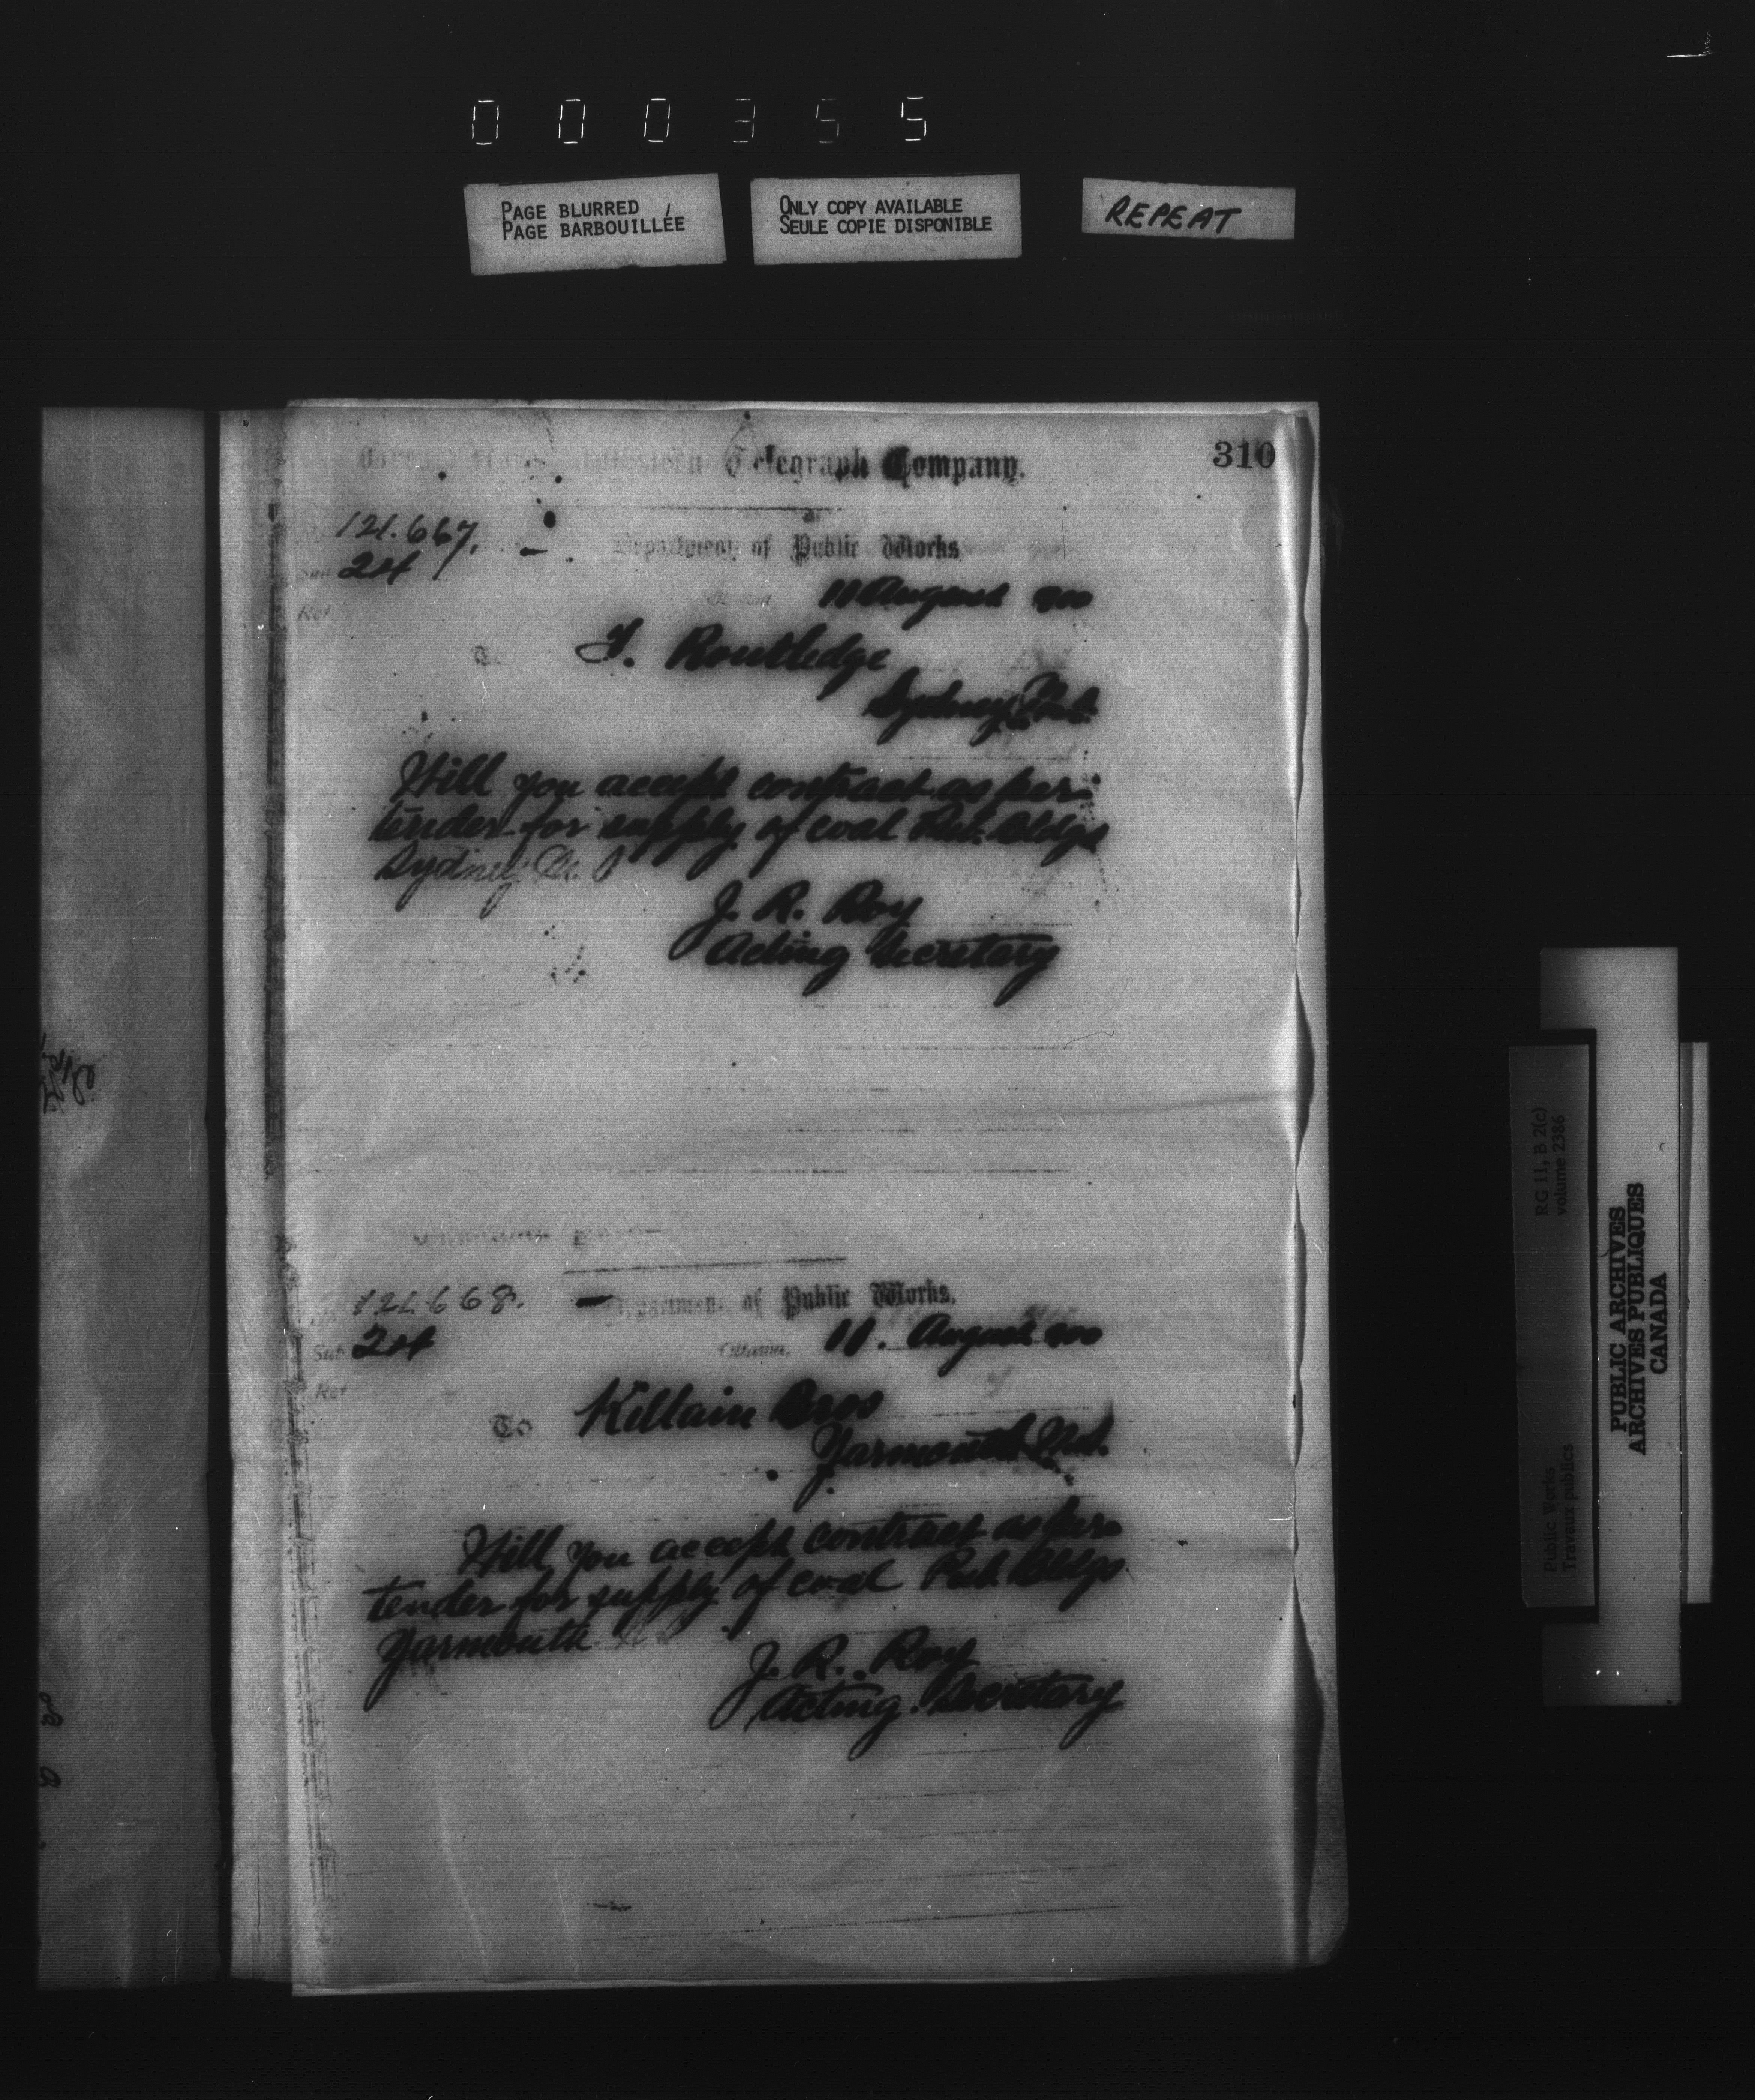 000355
PAGE BLURRED
PAGE BARBOUILLÉE
ONLY COPY AVAILABLE
SEULE COPIE DISPONIBLE
REPEAT
310
Western Telegraph Company.
121.667.
Department of Public Works
24
Ref
11 August 900
To T. Routledge
Sydney N.S.
Will you accept contract as per
tender for supply of coal Pub. Bldgs
Sydney
J. R. Roy
Acting Secretary
121668.
Department of Public Works,
Sub 24
Ottawa, 11. August 900
Ref
To Killain Bros
Yarmouth N.S.
Will you accept contract as per
tender for supply of coal Pub. Bldgs
Yarmouth
J. R. Roy
Acting Secretary
RG 11, B 2(c)
volume 2386
Public Works
Travaux publics
PUBLIC ARCHIVES
ARCHIVES PUBLIQUES
CANADA